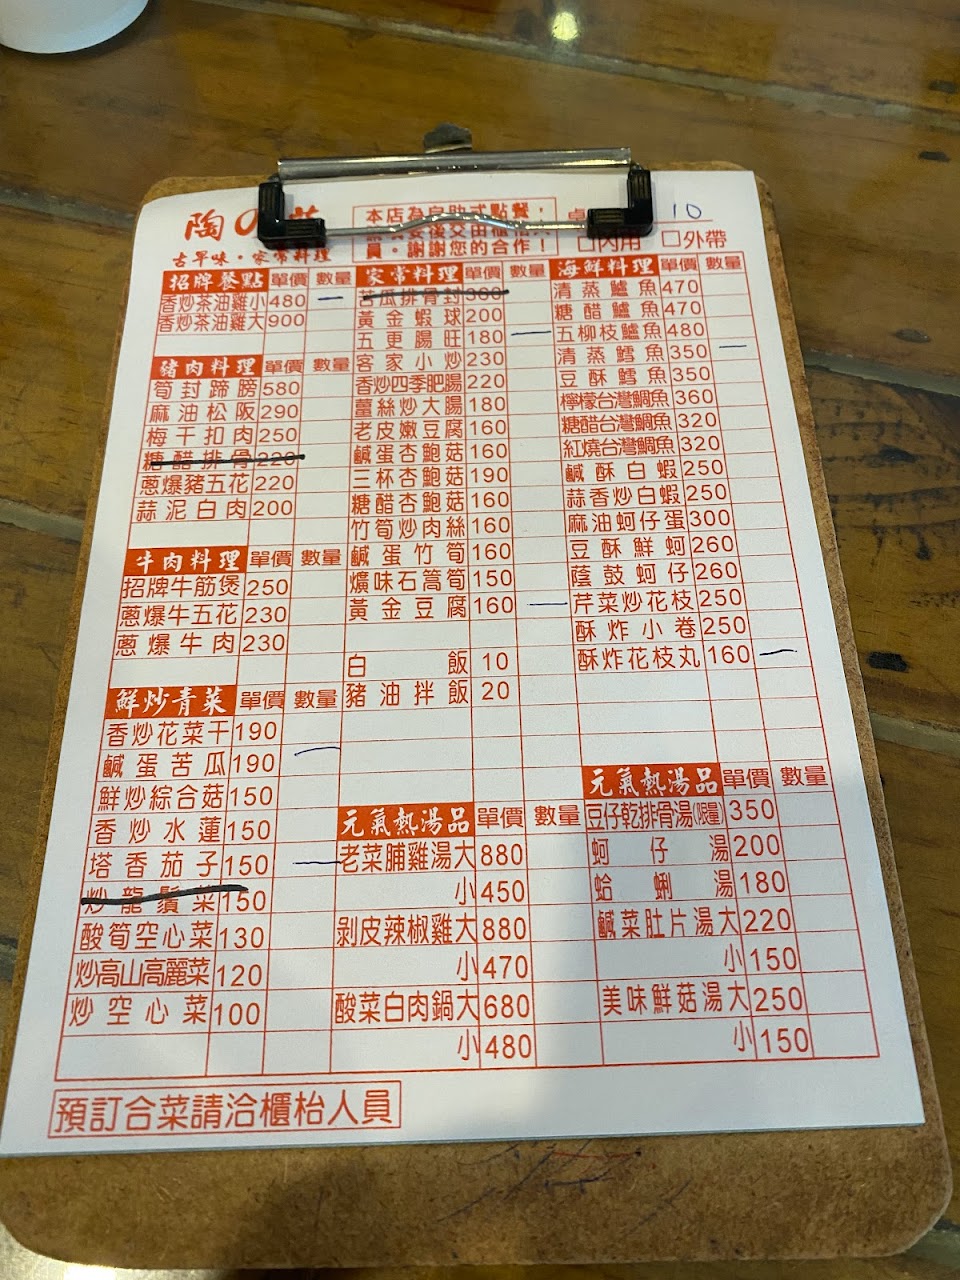 陶の
古早味・家常料理
本店為自助式點餐，
員。謝謝您的合作！
桌 10
□內用 □外帶
招牌餐點 單價 數量
香炒茶油雞小 480 一
香炒茶油雞大 900
豬肉料理 單價 數量
筍封蹄膀 580
麻油松阪 290
梅干扣肉 250
糖醋排骨 220
蔥爆豬五花 220
蒜泥白肉 200
牛肉料理 單價 數量
招牌牛筋煲 250
蔥爆牛五花 230
蔥爆牛肉 230
鮮炒青菜 單價 數量
香炒花菜干 190
鹹蛋苦瓜 190 一
鮮炒綜合菇 150
香炒水蓮 150
塔香茄子 150 一
炒龍鬚菜 150
酸筍空心菜 130
炒高山高麗菜 120
炒空心菜 100
家常料理 單價 數量
苦瓜排骨封 360
黃金蝦球 200
五更腸旺 180 一
客家小炒 230
香炒四季肥腸 220
薑絲炒大腸 180
老皮嫩豆腐 160
鹹蛋杏鮑菇 160
三杯杏鮑菇 190
糖醋杏鮑菇 160
竹筍炒肉絲 160
鹹蛋竹筍 160
爌味石篙筍 150
黃金豆腐 160 一
白飯 10
豬油拌飯 20
元氣熱湯品 單價 數量
老菜脯雞湯大 880
小 450
剝皮辣椒雞大 880
小 470
酸菜白肉鍋大 680
小 480
海鮮料理 單價 數量
清蒸鱸魚 470
糖醋鱸魚 470
五柳枝鱸魚 480
清蒸鱈魚 350 一
豆酥鱈魚 350
檸檬台灣鯛魚 360
糖醋台灣鯛魚 320
紅燒台灣鯛魚 320
鹹酥白蝦 250
蒜香炒白蝦 250
麻油蚵仔蛋 300
豆酥鮮蚵 260
蔭鼓蚵仔 260
芹菜炒花枝 250
酥炸小卷 250
酥炸花枝丸 160 一
元氣熱湯品 單價 數量
豆仔乾排骨湯(限量) 350
蚵仔湯 200
蛤蜊湯 180
鹹菜肚片湯大 220
小 150
美味鮮菇湯大 250
小 150
預訂合菜請洽櫃枱人員